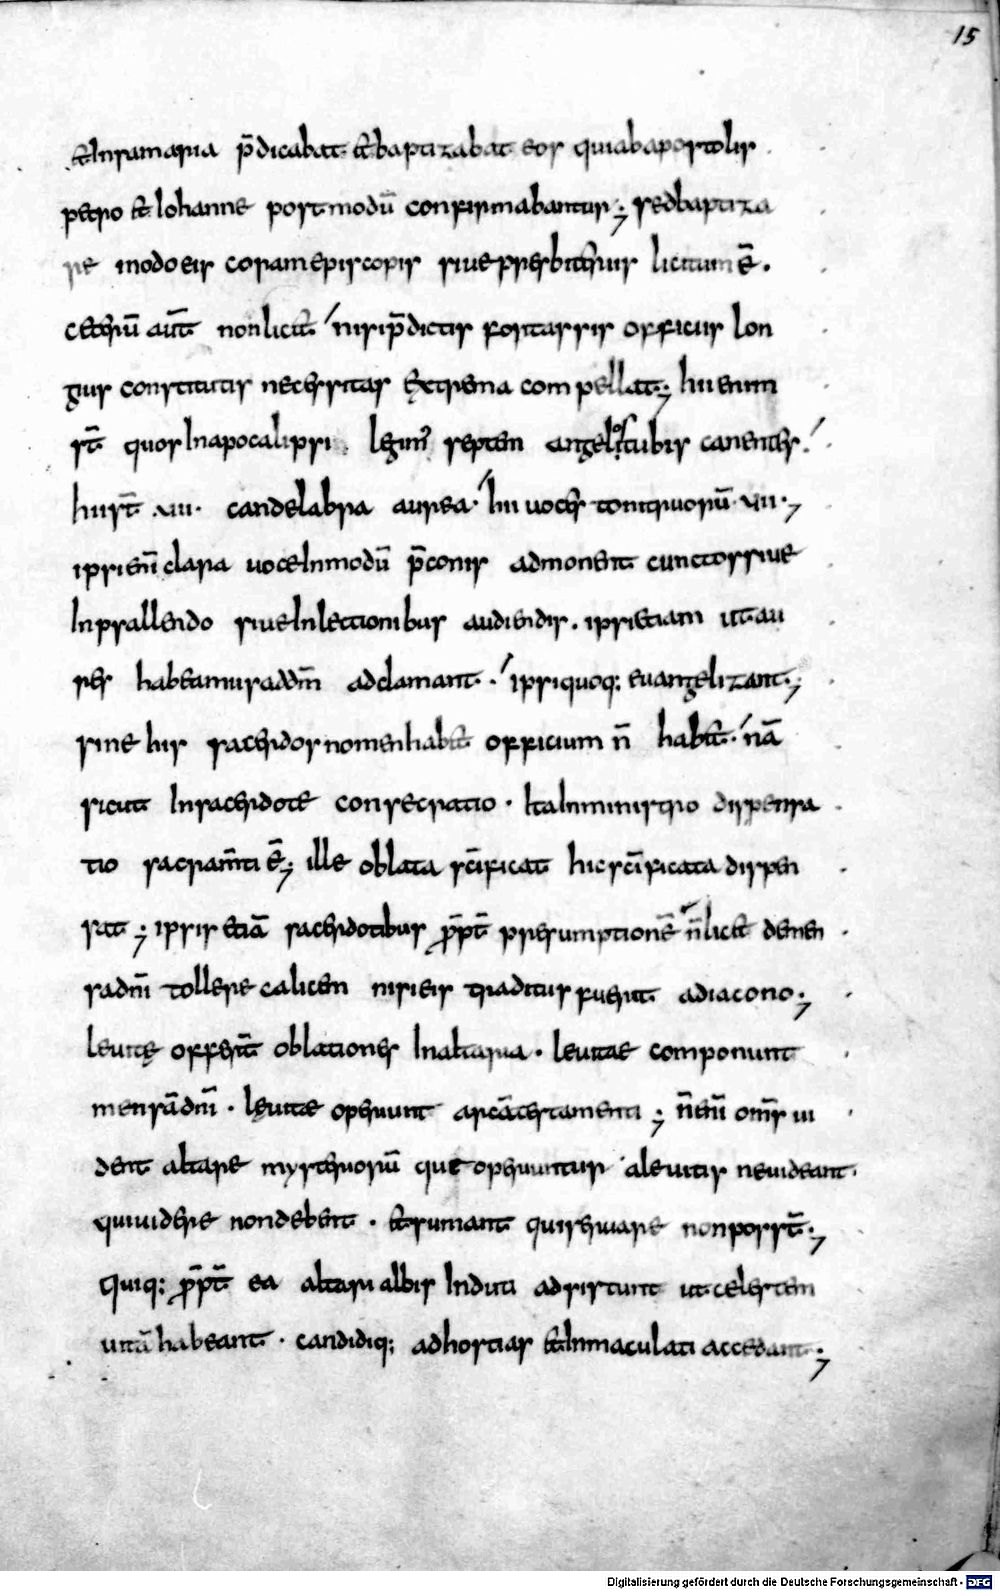 15
& In samaria p̄dicabat & baptizabat eos quia ab apostolis
petro & Iohanne postmodū confirmabantur; sed baptiza
re modo eis coram episcopis siue presbiteris licitum ē.
ceteriū aut̄ non licet nisi p̄dictis fortassis officiis lon
gius constitutis necessitas extrema compellat; hii enim
st̄ quos In apocalipsi legim̄ septem angelos tubis canentes.
hii st̄ .vii. candelabra aurea. hii uoces tonitruorū .vii.;
ipsi eni̅ clara uoce In modū p̄conis admonent cunctos siue
In psallendo siue In lectionibus audiendis. ipsi etiam ut au
res habeamus ad dm̄ adclamant. ipsi quoq; euangelizant;
sine his sacerdos nomen habet officium n̄ habet. nā
sicut In sacerdote consecratio. Ita In ministro dispensa
tio sacram̄ti ē; ille oblata sc̄ificat hic sc̄ificata dispen
sat; ipsis etiā sacerdotibus p̄pt̄ presumptionē n̄ licet de men
sa dn̄i tollere calicem nisi eis traditus fuerit a diacono;
leuitę offert̄ oblationes In altaria. leuitae componunt
mensā dn̄i. lęuitae operiunt arcā testamenti; n̄ eni̅ om̄s ui
dent altare mysteriorū que operiuntur a leuitis ne uideant
qui uidere non debent. & sumant qui seruare non posst̄;
Quiq; p̄pt̄ ea altari albis Induti adsistunt ut celestem
uitā habeant. candidiq; ad hostias & Inmaculati accedant;
Digitalisierung gefördert durch die Deutsche Forschungsgemeinschaft - DFG